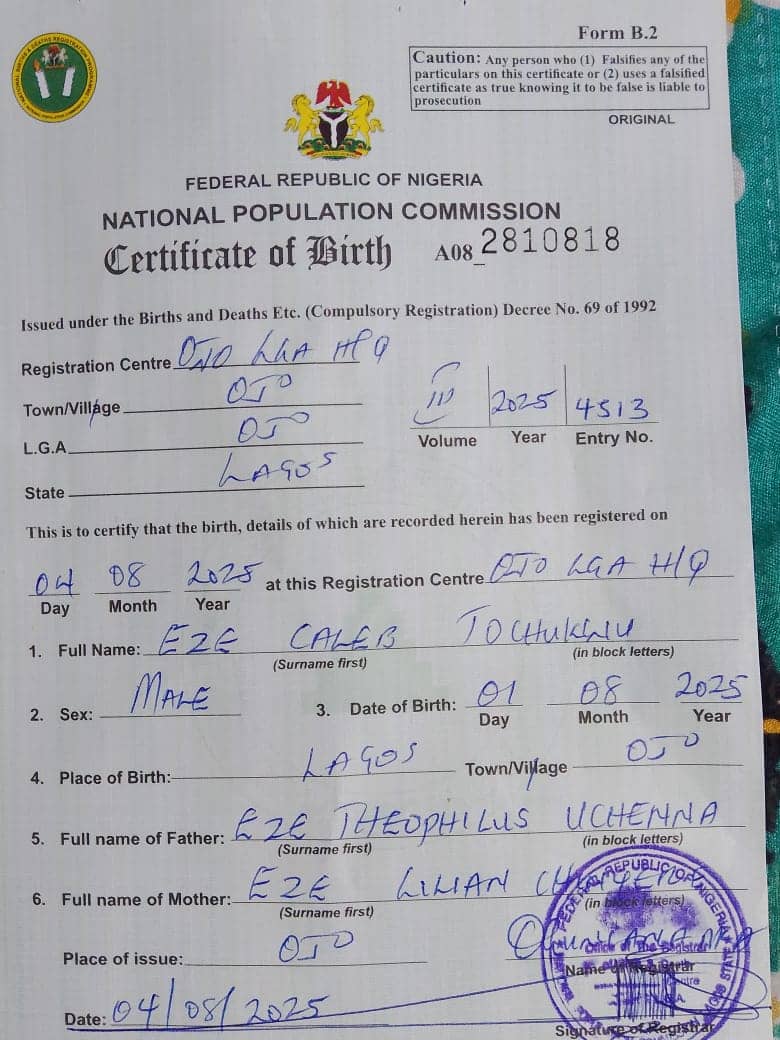 Form B.2
Caution: Any person who (1) Falsifies any of the
particulars on this certificate or (2) uses a falsified
certificate as true knowing it to be false is liable to
prosecution
ORIGINAL
FEDERAL REPUBLIC OF NIGERIA
NATIONAL POPULATION COMMISSION
Certificate of Birth A08_2810818
Issued under the Births and Deaths Etc. (Compulsory Registration) Decree No. 69 of 1992
Registration Centre OJO LGA H/Q
Town/Village OJO
III 2025 4513
Volume Year Entry No.
L.G.A. OJO
State LAGOS
This is to certify that the birth, details of which are recorded herein has been registered on
04 08 2025 at this Registration Centre OJO LGA H/Q
Day Month Year
1. Full Name: EZE CALEB TOCHUKWU
(Surname first) (in block letters)
2. Sex: MALE 3. Date of Birth: 01 08 2025
Day Month Year
4. Place of Birth: LAGOS Town/Village OJO
5. Full name of Father: EZE THEOPHILUS UCHENNA
(Surname first) (in block letters)
6. Full name of Mother: EZE LILIAN
(Surname first) (in block letters)
Place of issue: OJO
Name of Registrar
Date: 04/08/2025
Signature of Registrar
FEDERAL REPUBLIC OF NIGERIA